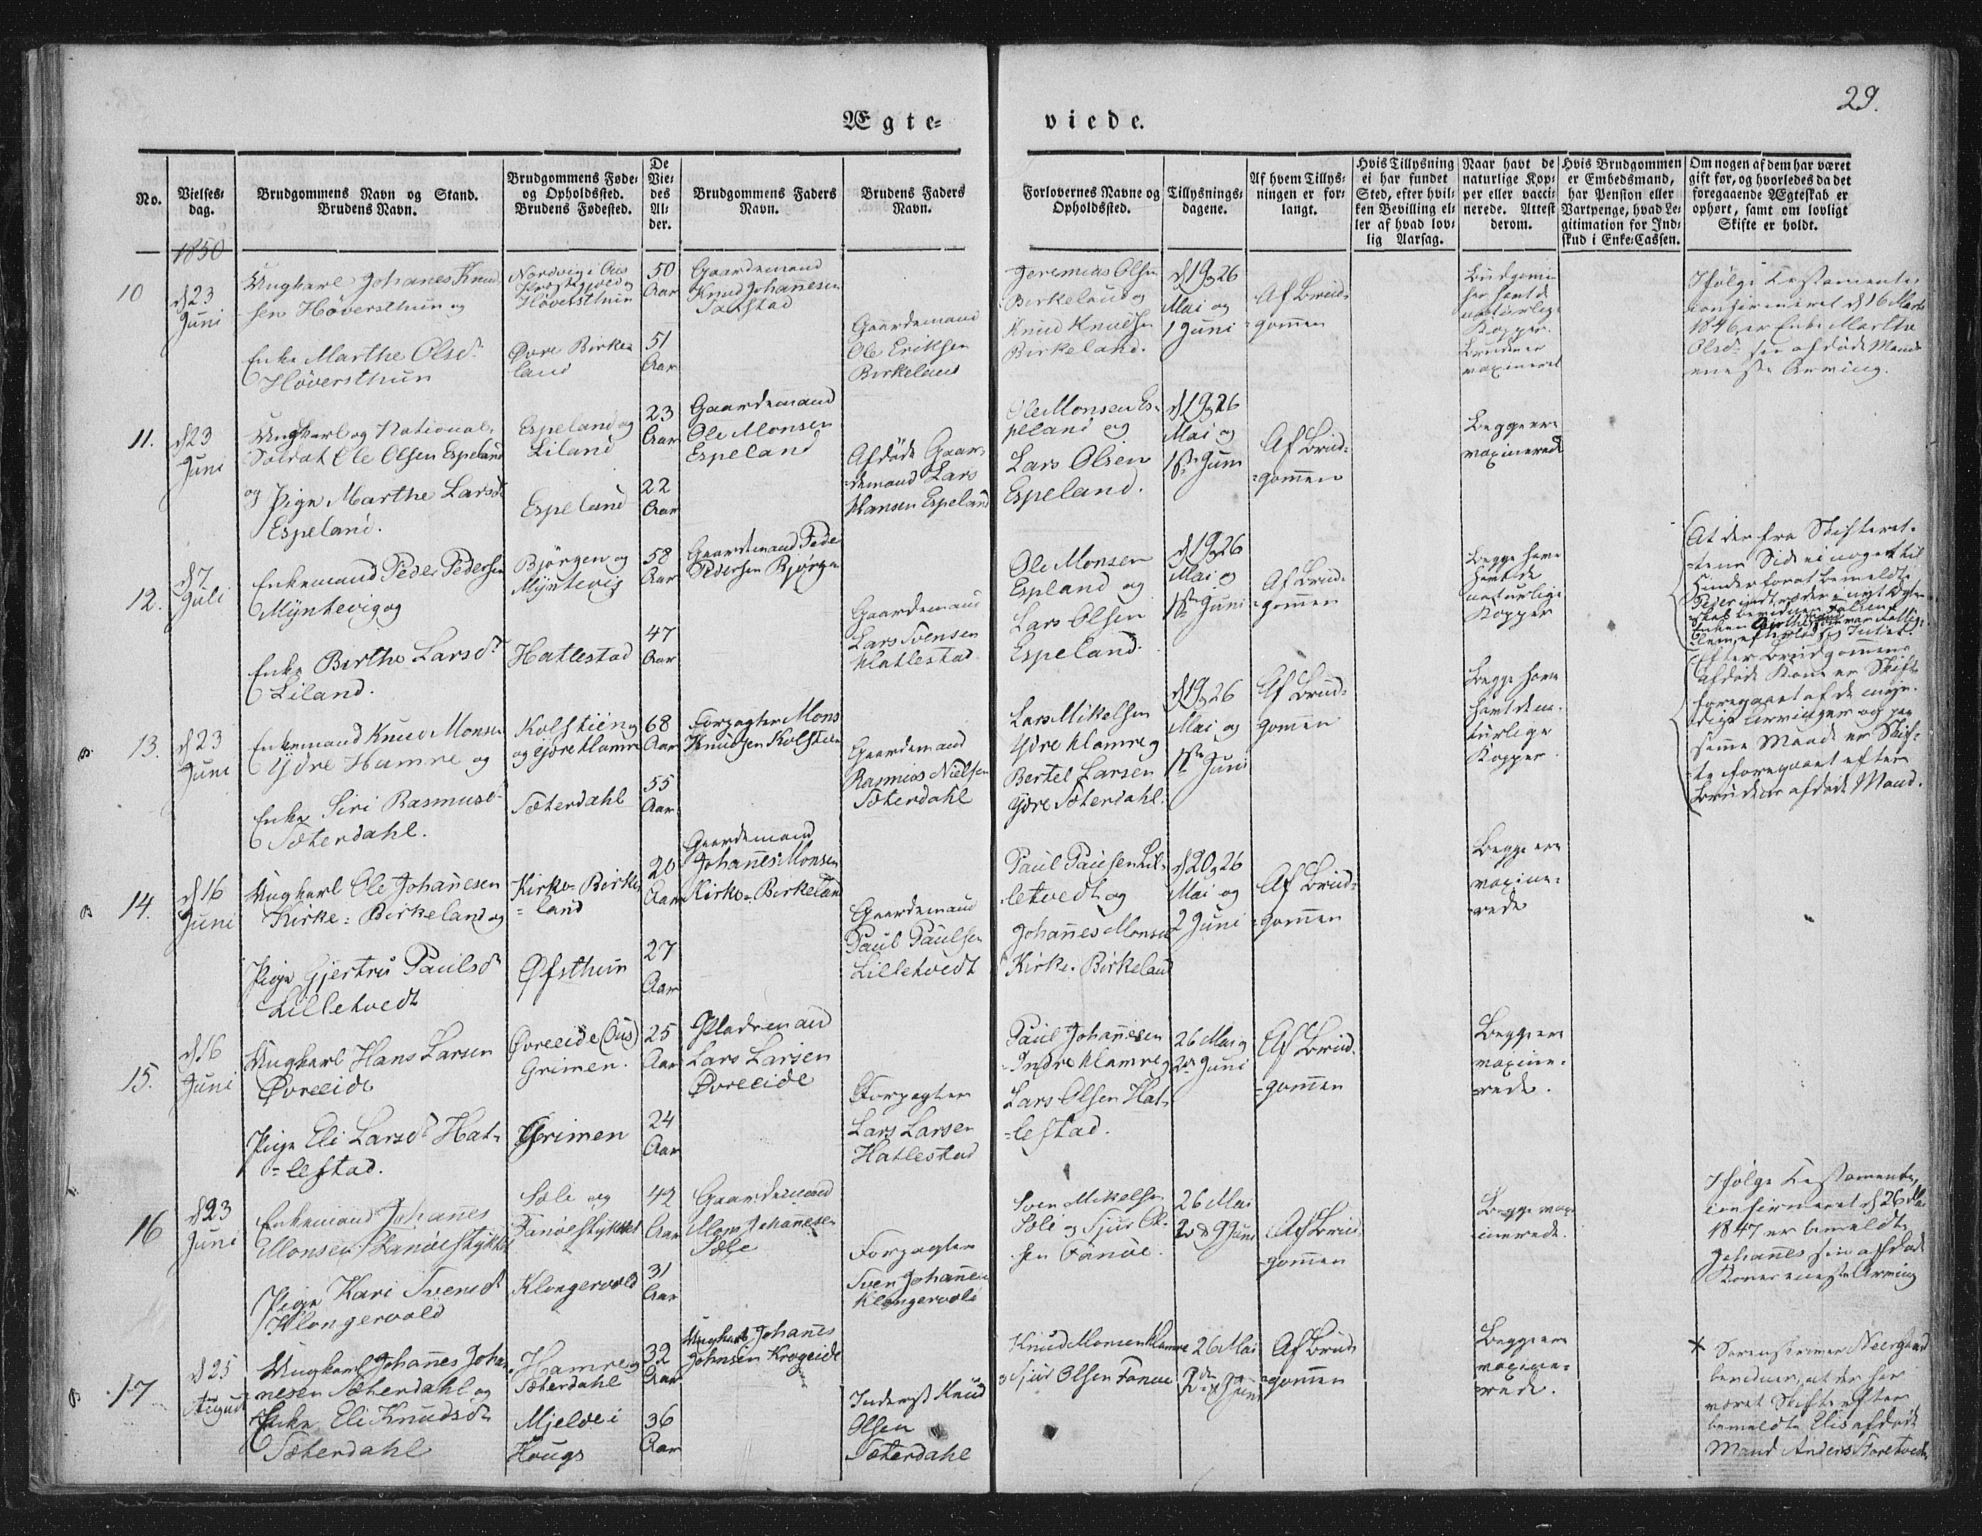 29.
Ægte-
viede.
No.
Vielses-
dag.
Brudgommens Navn og Stand.
Brudens Navn.
Brudgommens Føde-
og Opholdssted.
Brudens Fødested.
De
Vie-
des
Al-
der.
Brudgommens Faders
Navn.
Brudens Faders
Navn.
Forlovernes Navne og
Opholdssted.
Tillysnings-
dagene.
Af hvem Tillys-
ningen er for-
langt.
Hvis Tillysning
ei har fundet
Sted, efter hvil-
ken Bevilling el-
ler af hvad lov-
lig Aarsag.
Naar havt de
naturlige Kop-
per eller vacci-
nerede. Attest
derom.
Hvis Brudgommen
er Embedsmand,
har Pension eller
Vartpenge, hvad Le-
gitimation for Ind-
skud i Enke-Cassen.
Om nogen af dem har været
gift før, og hvorledes da det
foregaaende Ægteskab er
ophørt, samt om lovligt
Skifte er holdt.
1850
10
d 23
Juni
Ungkarl Johanes Knud
sen Höversthun og
Enke Marthe Olsd.
Höversthun
Nordvig i Ous
Præstegjeld og
Höversthun
Övre Birke
land
50
Aar
51
Aar
Gaardemand
Knud Johannesen
Gaardemand
Ole Eriksen
Birkeland
Jeremias Olsen
Birkeland og
Knud Knudsen
Birkeland.
d 19 & 26
Mai og
1 Juni
Af Brud-
gommen
Brudgomen
har havt de
naturlige
Kopper.
Bruden er
vaxineret
Ifölge Testamente
confirmeret d 16 Marts
1846 er Enke Marthe
Olsd. sin afdöde Mands
eneste Arving.
11.
d 23
Juni
Ungkarl og National-
Soldat Ole Olsen Espeland
og Pige Marthe Larsd
Espeland.
Espeland og
Liland
Espeland
23
Aar
22
Aar
Gaardemand
Ole Monsen
Espeland
Afdöde Gaar-
demand Lars
Hansen Espeland
Ole Monsen Es-
peland og
Lars Olsen
Espeland.
d 19 & 26
Mai og
1ste Juni
Af Brud-
gommen
Begge ere
vaxinerede
12.
d 7
Juli
Enkemand Peder Pedersen
Myntevig og
Enke Birthe Larsd.
Liland.
Björgen og
Myntevig
Hatlestad
58
Aar
47
Aar
Gaardemand Peder
Pedersen Björgen
Gaardemand
Lars Svensen
Hatlestad
Ole Monsen
Espland og
Lars Olsen
Espeland.
d 19 & 26
Mai og
1ste Juni
Af Brud-
gommen
Begge have
havt de
naturlige
Kopper
At der fra Skifteret-
tens Side ei noget til
Hinder forat bemeldte
Peder indtræder i nyt Ægte-
13.
d 23
Juni
Enkemand Knud Monsen
Ydre Hamre og
Enke Siri Rasmusd
Sæterdahl.
Kolstien
og Ydre Hamre
Sæterdahl
68
Aar
55
Aar
Forpagter Mons
Knudsen Kolstien
Gaardemand
Rasmus Nielsen
Sæterdahl
Lars Mikelsen
Ydre Hamre og
Bertel Larsen
Ydre Sæterdahl.
d 19 & 26
Mai og
1ste Juni
Af Brud-
gomen
Begge have
havt de na-
turlige
Kopper.
Efter Brudgommens
afdöde Kone er Skifte
foregaaet af de myn-
dige Arvinger og paa
samme Maade er Skif-
te foregaaet efter
Brudens afdöde Mand.
14.
d 16
Juni
Ungkarl Ole Johanesen
Kirke-Birkeland og
Pige Gjertru Paulsd
Lilletvedt
Kirke-Birke
land
Öfsthun
20
Aar
27
Aar
Gaardemand
Johannes Monsen
Kirke-Birkeland
Gaardemand
Paul Paulsen
Lilletvedt
Paul Paulsen Lil-
letvedt og
Johannes Monsen
Kirke-Birkeland
d 20 & 26
Mai og
2 Juni
Af Brud-
gommen
Begge ere
vaxine-
rede
15.
d 16
Juni
Ungkarl Hans Larsen
Övreeide
Pige Eli Larsd. Hat-
lestad.
Övreeide (Ous)
Grimen.
Grimen
25
Aar
24
Aar
Pladsemand
Lars Larsen
Övreeide
Forpagter
Lars Larsen
Hatlestad
Paul Johannesen
Indre Hamre og
Lars Olsen Hat-
lestad.
26 Mai og
2 Juni
Af Brud-
gommen
Begge ere
vaxine-
rede.
16
d 23
Juni
Enkemand Johanes
Monsen Fanöestykket
Pige Kari Svensd
Klongervold
Söle og
Fanöestykket
Klongervold
42
Aar
31
Aar
Gaardemand
Mons Johannesen
Söle
Forpagter
Sven Johannesen
Klongervold
Sven Mikelsen
Söle og Sjur Ol-
sen Fanöe.
26 Mai
2 & 9 Juni
Af Brud-
gommen
Begge vax-
inerede.
Ifölge Testamente
confirmeret d 26 Mai
1847 er bemeldte
Johannes sin afdöde
Kones eneste Arving
17
d 25
August
Ungkarl Johannes Joha
nesen Sæterdahl og
Enke Eli Knudsd
Sæterdahl
Hamre og
Sæterdahl
Mjelde i
Hougs
32
Aar
36
Aar
Ungkarl Johanes
Johnsen Krogeide
Inderst Knud
Olsen
Sæterdahl
Knud Monsen Hamre
Sjur Olsen Fanöe
26 Mai
Af Brud
gommen
Begge ere
vaxine-
rede.
× Sorenskriver Neergaard
bevidner, at der har
været Skifte efter
bemeldte Elis afdöde
Mand Anders Storetvedt